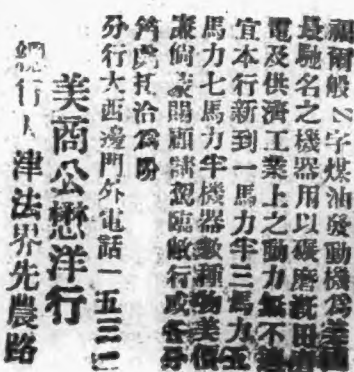 福爾般Z字煤油發動機為美國
最馳名之機器用以碾磨漑田
電及供濟工業上之動力無不
宜本行新到一馬力半三馬力五
馬力七馬力半機器數種物美價
廉倘蒙賜顧請親臨敝行或各分
銷處接洽為盼
分行大西邊門外電話一五三二
美商公懋洋行
總行天津法界先農路